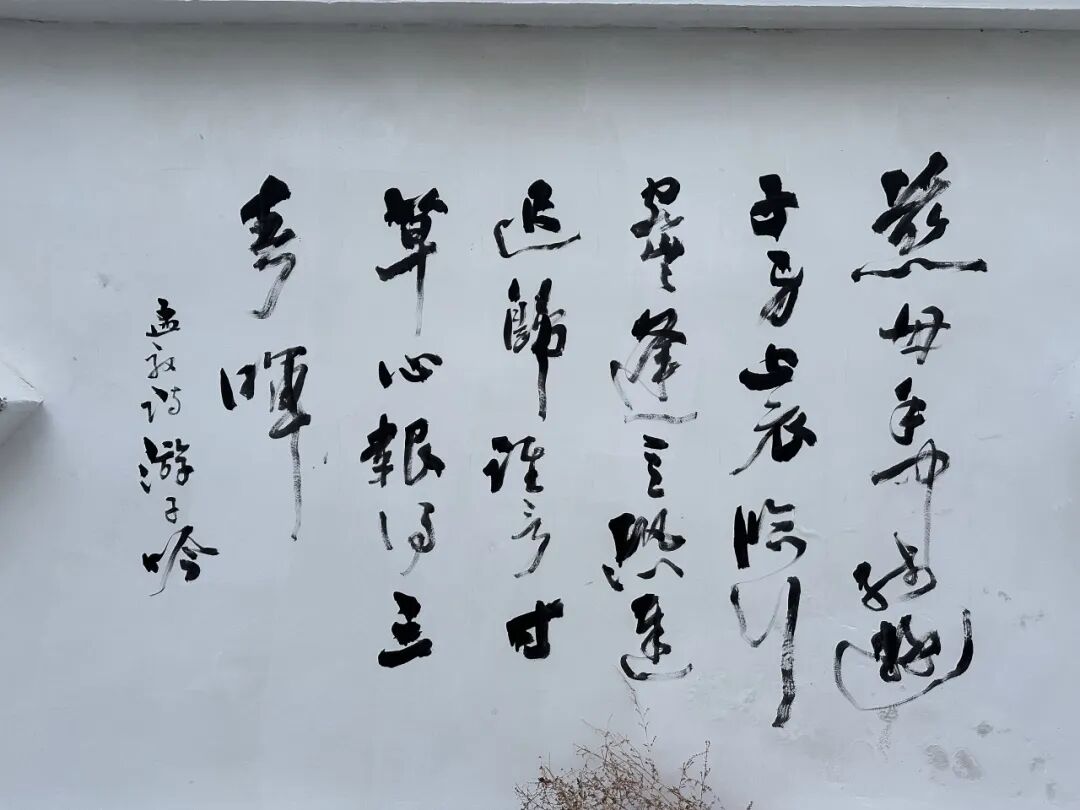 慈母手中线遊
子身上衣临行
密密缝意恐遲
迟歸谁言寸
草心報得三
春暉
孟郊诗游子吟